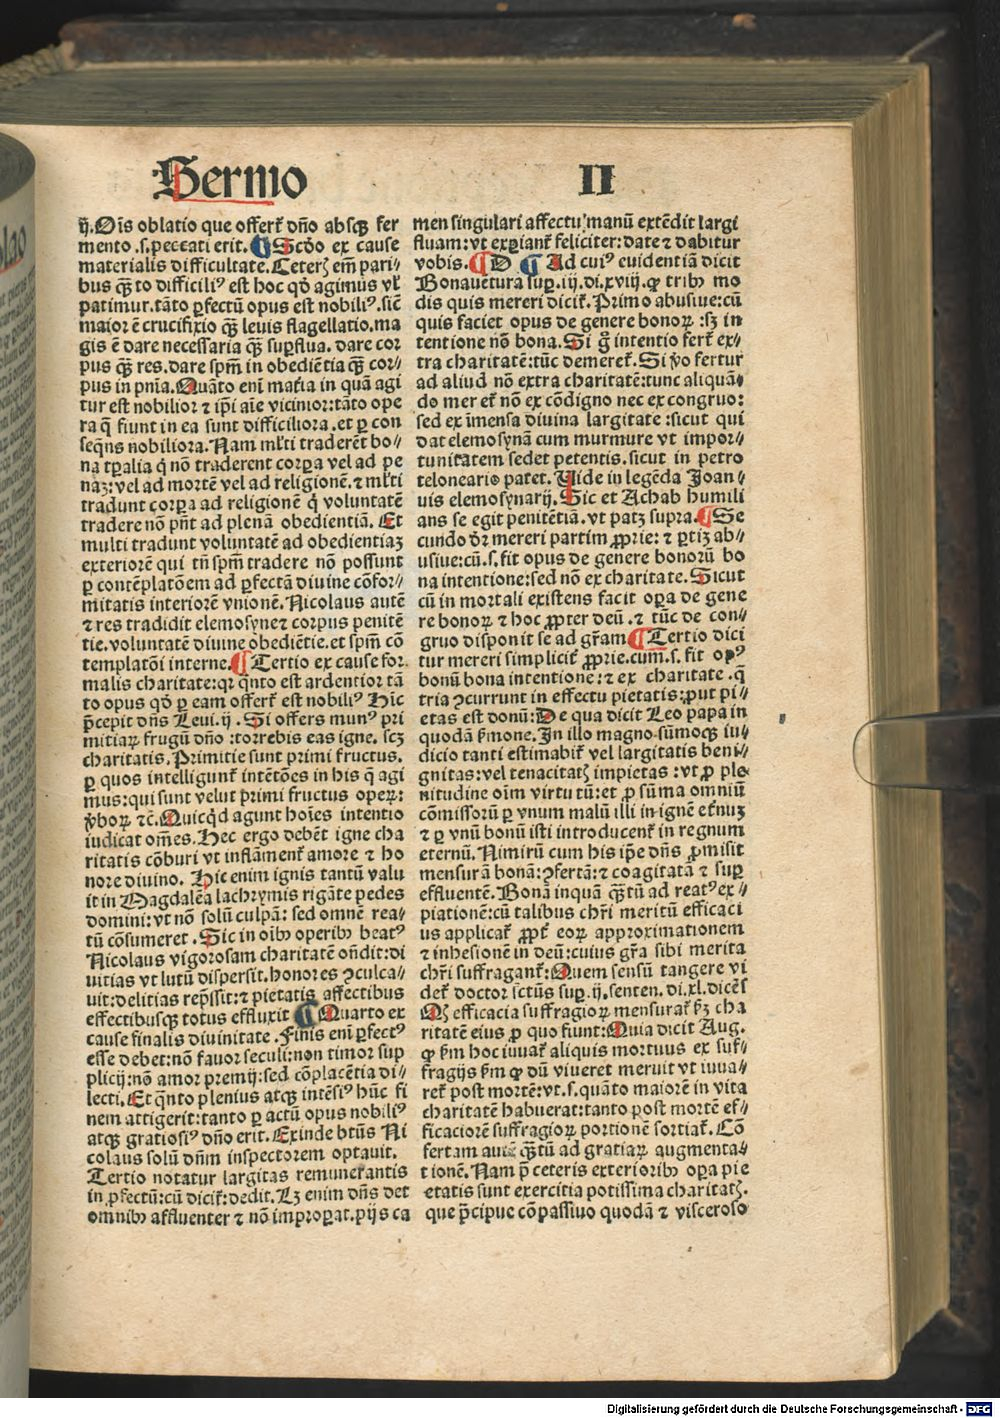 Sermo II
ij. Oĩs oblatio que offerť dño absqꝫ fer
mento .s. peccati erit. ¶ Scďo ex cause
materialis difficultate. Ceterꝫ em̃ pari⸗
bus qꝫ̃to difficiliꝰ est hoc qď agimus vł
patimur. tãto ꝑfectũ opus est nobiliꝰ. sicut̃
maior ẽ crucifixio qꝫ̃ leuis flagellatio. ma
gis ẽ dare necessaria qꝫ̃ suꝑflua. dare cor
pus qꝫ̃ res. dare spm̃ in obediẽtia qꝫ̃ cor⸗
pus in pñia. Quãto eni maťia in quã agi
tur est nobilior ⁊ ip̃i aĩe vicinior: tãto ope
ra q̃ fiunt in ea sunt difficiliora. et ꝑ con
seqñs nobiliora. Nam młti traderẽt bo⸗
na tꝑalia q̃ nõ traderent corꝑa vel ad pe
naꝫ: vel ad mortẽ vel ad religionẽ. ⁊ młti
tradunt corꝑa ad religionẽ q̃ voluntatẽ
tradere nõ pñt ad plenã obedientiã. Et
multi tradunt voluntatẽ ad obedientiaꝫ
exteriorẽ qui tñ spm̃ tradere nõ possunt
ꝑ contẽplatõem ad ꝑfectã diuine cõfor⸗
mitatis interiorẽ vnionẽ. Nicolaus autẽ
⁊ res tradidit elemosyne ⁊ corpus penitẽ
tie. voluntatẽ diuine obediẽtie. et spm̃ cõ
templatõi interne. ¶ Tertio ex cause for
malis charitate: qꝛ q̃nto est ardentior tã
to opus qď ꝑ eam offerť est nobiliꝰ Hic̃
p̃cepit dñs Leui. ij. Si offers munꝰ pri
mitiaꝝ frugũ dño: torrebis eas igne. scꝫ
charitatis. Primitie sunt primi fructus.
ꝑ quos intelligunť intẽtões in his q̃ agi
mus: qui sunt velut primi fructus operꝫ:
ṽboꝝ ⁊c̃. Quicqď agunt hoĩes intentio
iudicat om̃es. Hec ergo debẽt igne cha
ritatis cõburi vt inflãmenť amore ⁊ ho
nore diuino. Hic enim ignis tantũ valu
it in Magdalẽa lachrymis rigãte pedes
domini: vt nõ solũ culpã: sed omnẽ rea⸗
tũ cõsumeret. Sic in oĩbꝫ operibꝫ beatꝰ
Nicolaus vigorosam charitatẽ oñdit: di
uitias vt lutũ dispersit. honores ꝯculca⸗
uit: delitias rep̃ssit: ⁊ pietatis affectibus
effectibusqꝫ totus effluxit ¶ Quarto ex
cause finalis diuinitate. Finis eni ꝑfectꝰ
esse debet: nõ fauor seculi: non timor sup
plicij: nõ amor premij: sed cõplacẽtia di⸗
lecti. Et q̃nto plenius atqꝫ intẽsiꝰ hũc fi
nem attigerit: tanto ꝑ actũ opus nobiliꝰ
atqꝫ gratiosiꝰ dño erit. Exinde btũs Ni
colaus solũ dñm inspectorem optauit.
Tertio notatur largitas remunerantis
in ꝓfectũ: cũ diciť: dedit. Lꝫ enim dñs det
omnibꝫ affluenter ⁊ nõ improꝑat. pijs ca
men singulari affectu manũ extẽdit largi
fluam: vt expianť feliciter: date ⁊ dabitur
vobis. ¶ D ¶ Ad cuiꝰ euidentiã dicit
Bonauẽtura suꝑ. iij. di. xviij. ꝙ tribꝫ mo
dis quis mereri diciť. Primo abusiue: cũ
quis faciet opus de genere bonoꝝ: sꝫ in
tentione nõ bona. Si g̃ intentio ferť ex⸗
tra charitatẽ: tũc demereť. Si ṽo fertur
ad aliud nõ extra charitatẽ: tunc aliquã⸗
do mereť nõ ex cõdigno nec ex congruo:
sed ex ĩmensa diuina largitate: sicut qui
dat elemosynã cum murmure vt impor⸗
tunitatem sedet petentis. sicut in petro
teloneario patet. Vide in legẽda Joan⸗
nis elemosynarij. Sic et Achab humili
ans se egit penitẽtiã. vt patꝫ supra. ¶ Se
cundo ďr mereri partim ꝓprie: ⁊ ꝑtiꝫ ab⸗
usiue: cũ .s. fit opus de genere bonorũ bo
na intentione: sed nõ ex charitate. Sicut
cũ in mortali existens facit oꝑa de gene
re bonoꝝ ⁊ hoc ꝓpter deũ. ⁊ tũc de con⸗
gruo disponit se ad gr̃am ¶ Tertio dici
tur mereri simpliciť ꝓprie. cum .s. fit opꝰ
bonũ bona intentione: ⁊ ex charitate. q̃
tria ꝯcurrunt in effectu pietatis: put pi⸗
etas est donũ: De qua dicit Leo papa in
quodã ẽmone. In illo magno sũmoqꝫ iu⸗
dicio tanti estimabiť vel largitatis beni⸗
gnitas: vel tenacitatꝫ impietas: vt ꝓ ple⸗
nitudine oĩm virtutũ: et ꝓ sũma omniũ
cõmissorũ ꝑ vnum malũ illi in ignẽ eťnuꝫ
⁊ ꝑ vnũ bonũ isti introducenť in regnum
eternũ. Nimirũ cum his ip̃e dñs ꝓmisit
mensurã bonã: ꝯfertã: ⁊ coagitatã ⁊ suꝑ
effluentẽ. Bonã inquã qꝫ̃tũ ad reatꝰ ex⸗
piationẽ: cũ talibus chr̃i meritũ efficaci
us applicať ꝓpť eoꝝ approximationem
⁊ inhesionẽ in deũ: cuius gr̃a sibi merita
chr̃i suffraganť: Quem sensũ tangere vi
deť doctor sctũs suꝑ. ij. senten. di. xl. dicẽs
Qꝫ efficacia suffragioꝝ mensurať ẽꝫ cha
ritatẽ eius ꝓ quo fiunt: Quia dicit Aug.
ꝙ ẽm hoc iuuať aliquis mortuus ex suf⸗
fragijs ẽm ꝙ dũ viueret meruit vt iuua⸗
reť post mortẽ: vt .s. quãto maiorẽ in vita
charitatẽ habuerat: tanto post mortẽ ef⸗
ficaciorẽ suffragioꝝ portionẽ sortiať. Cõ
fertam autẽ qꝫ̃tũ ad gratiaꝝ augmenta⸗
tionẽ. Nam p̃ ceteris exterioribꝫ oꝑa pie
etatis sunt exercitia potissima charitatꝫ.
que p̃cipue cõpassiuo quodã ⁊ visceroso
Digitalisierung gefördert durch die Deutsche Forschungsgemeinschaft - DFG